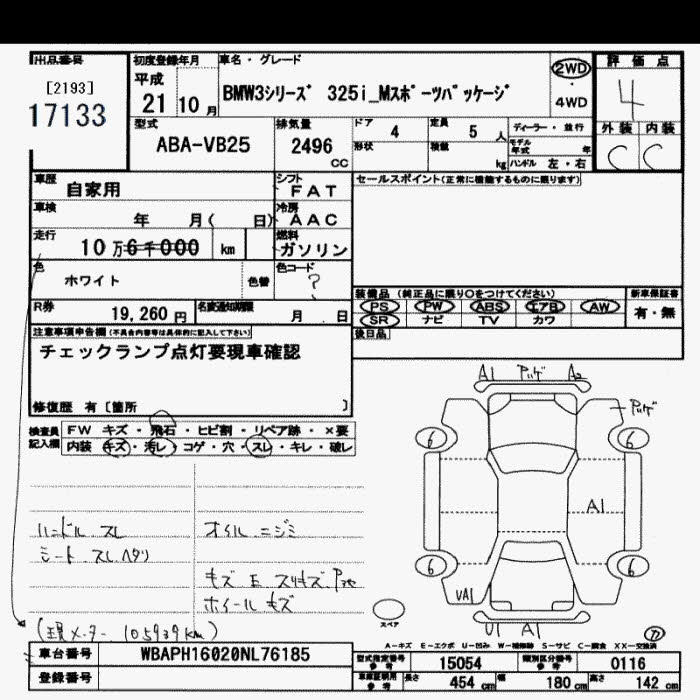 出品番号
[2193]
17133
初度登録年月
平成
21 10 月
車名・グレード
BMW3シリーズ 325i_Mスポーツパッケージ
2WD
・
4WD
評価点
4
外装 内装
C C
型式
ABA-VB25
排気量
2496
CC
ドア 4
定員 5 人
形状
積載 kg
ディーラー・並行
モデル年式 年
ハンドル 左・右
車歴
自家用
シフト
FAT
セールスポイント(正常に機能するものに限ります)
車検
年 月( 日)
冷房
AAC
走行
10万6千000 km
燃料
ガソリン
色
ホワイト
色替
色コード
?
装備品 (純正品に限り〇をつけてください)
PS PW ABS エアB AW
SR ナビ TV カワ
新車保証書
有・無
R券
19,260 円
名変通知期限
月 日
後日品
注意事項申告欄(不具合内容等は具体的に記入して下さい)
チェックランプ点灯要現車確認
修復歴 有〔箇所 〕
検査員
記入欄
FW キズ・飛石・ヒビ割・リペア跡・×要
内装 キズ・汚レ・コゲ・穴・スレ・キレ・破レ
ハンドル スレ
シート スレ ヘタリ
オイル ニジミ
ホイール キズ
A1 A2
6 6
A1
6 6
VA1
U1 A1
スペア
(現メーター 105939km)
A-キズ E-エクボ U-凹み W-補修跡 S-サビ C-腐食 XX-交換済
車台番号
WBAPH16020NL76185
登録番号
型式指定番号
参考
15054
類別区分番号
参考
0116
車庫証明用
参考
長さ 454 cm
幅 180 cm
高さ 142 cm